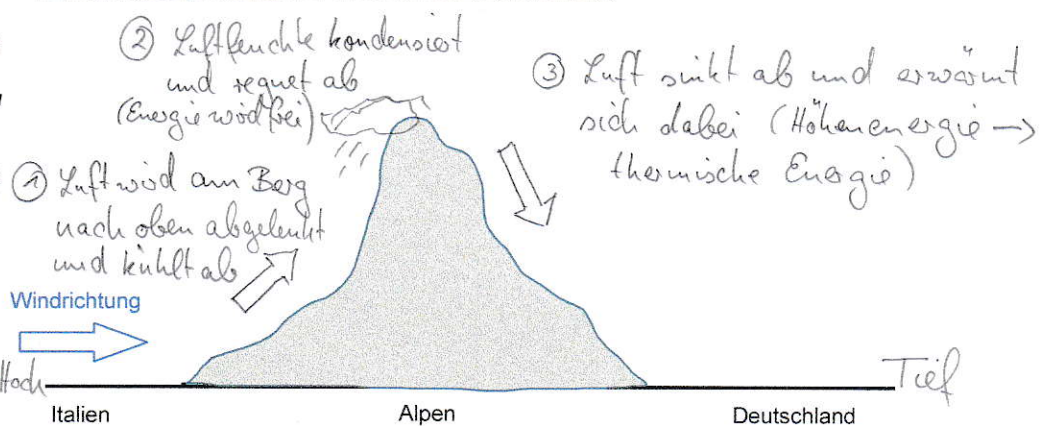 ② Luftfeuchte kondensiert
und regnet ab
(Energie wird frei)
③ Luft sinkt ab und erwärmt
sich dabei (Höhenenergie →
thermische Energie)
① Luft wird am Berg
nach oben abgelenkt
und kühlt ab
Windrichtung
Hoch
Tief
Italien
Alpen
Deutschland